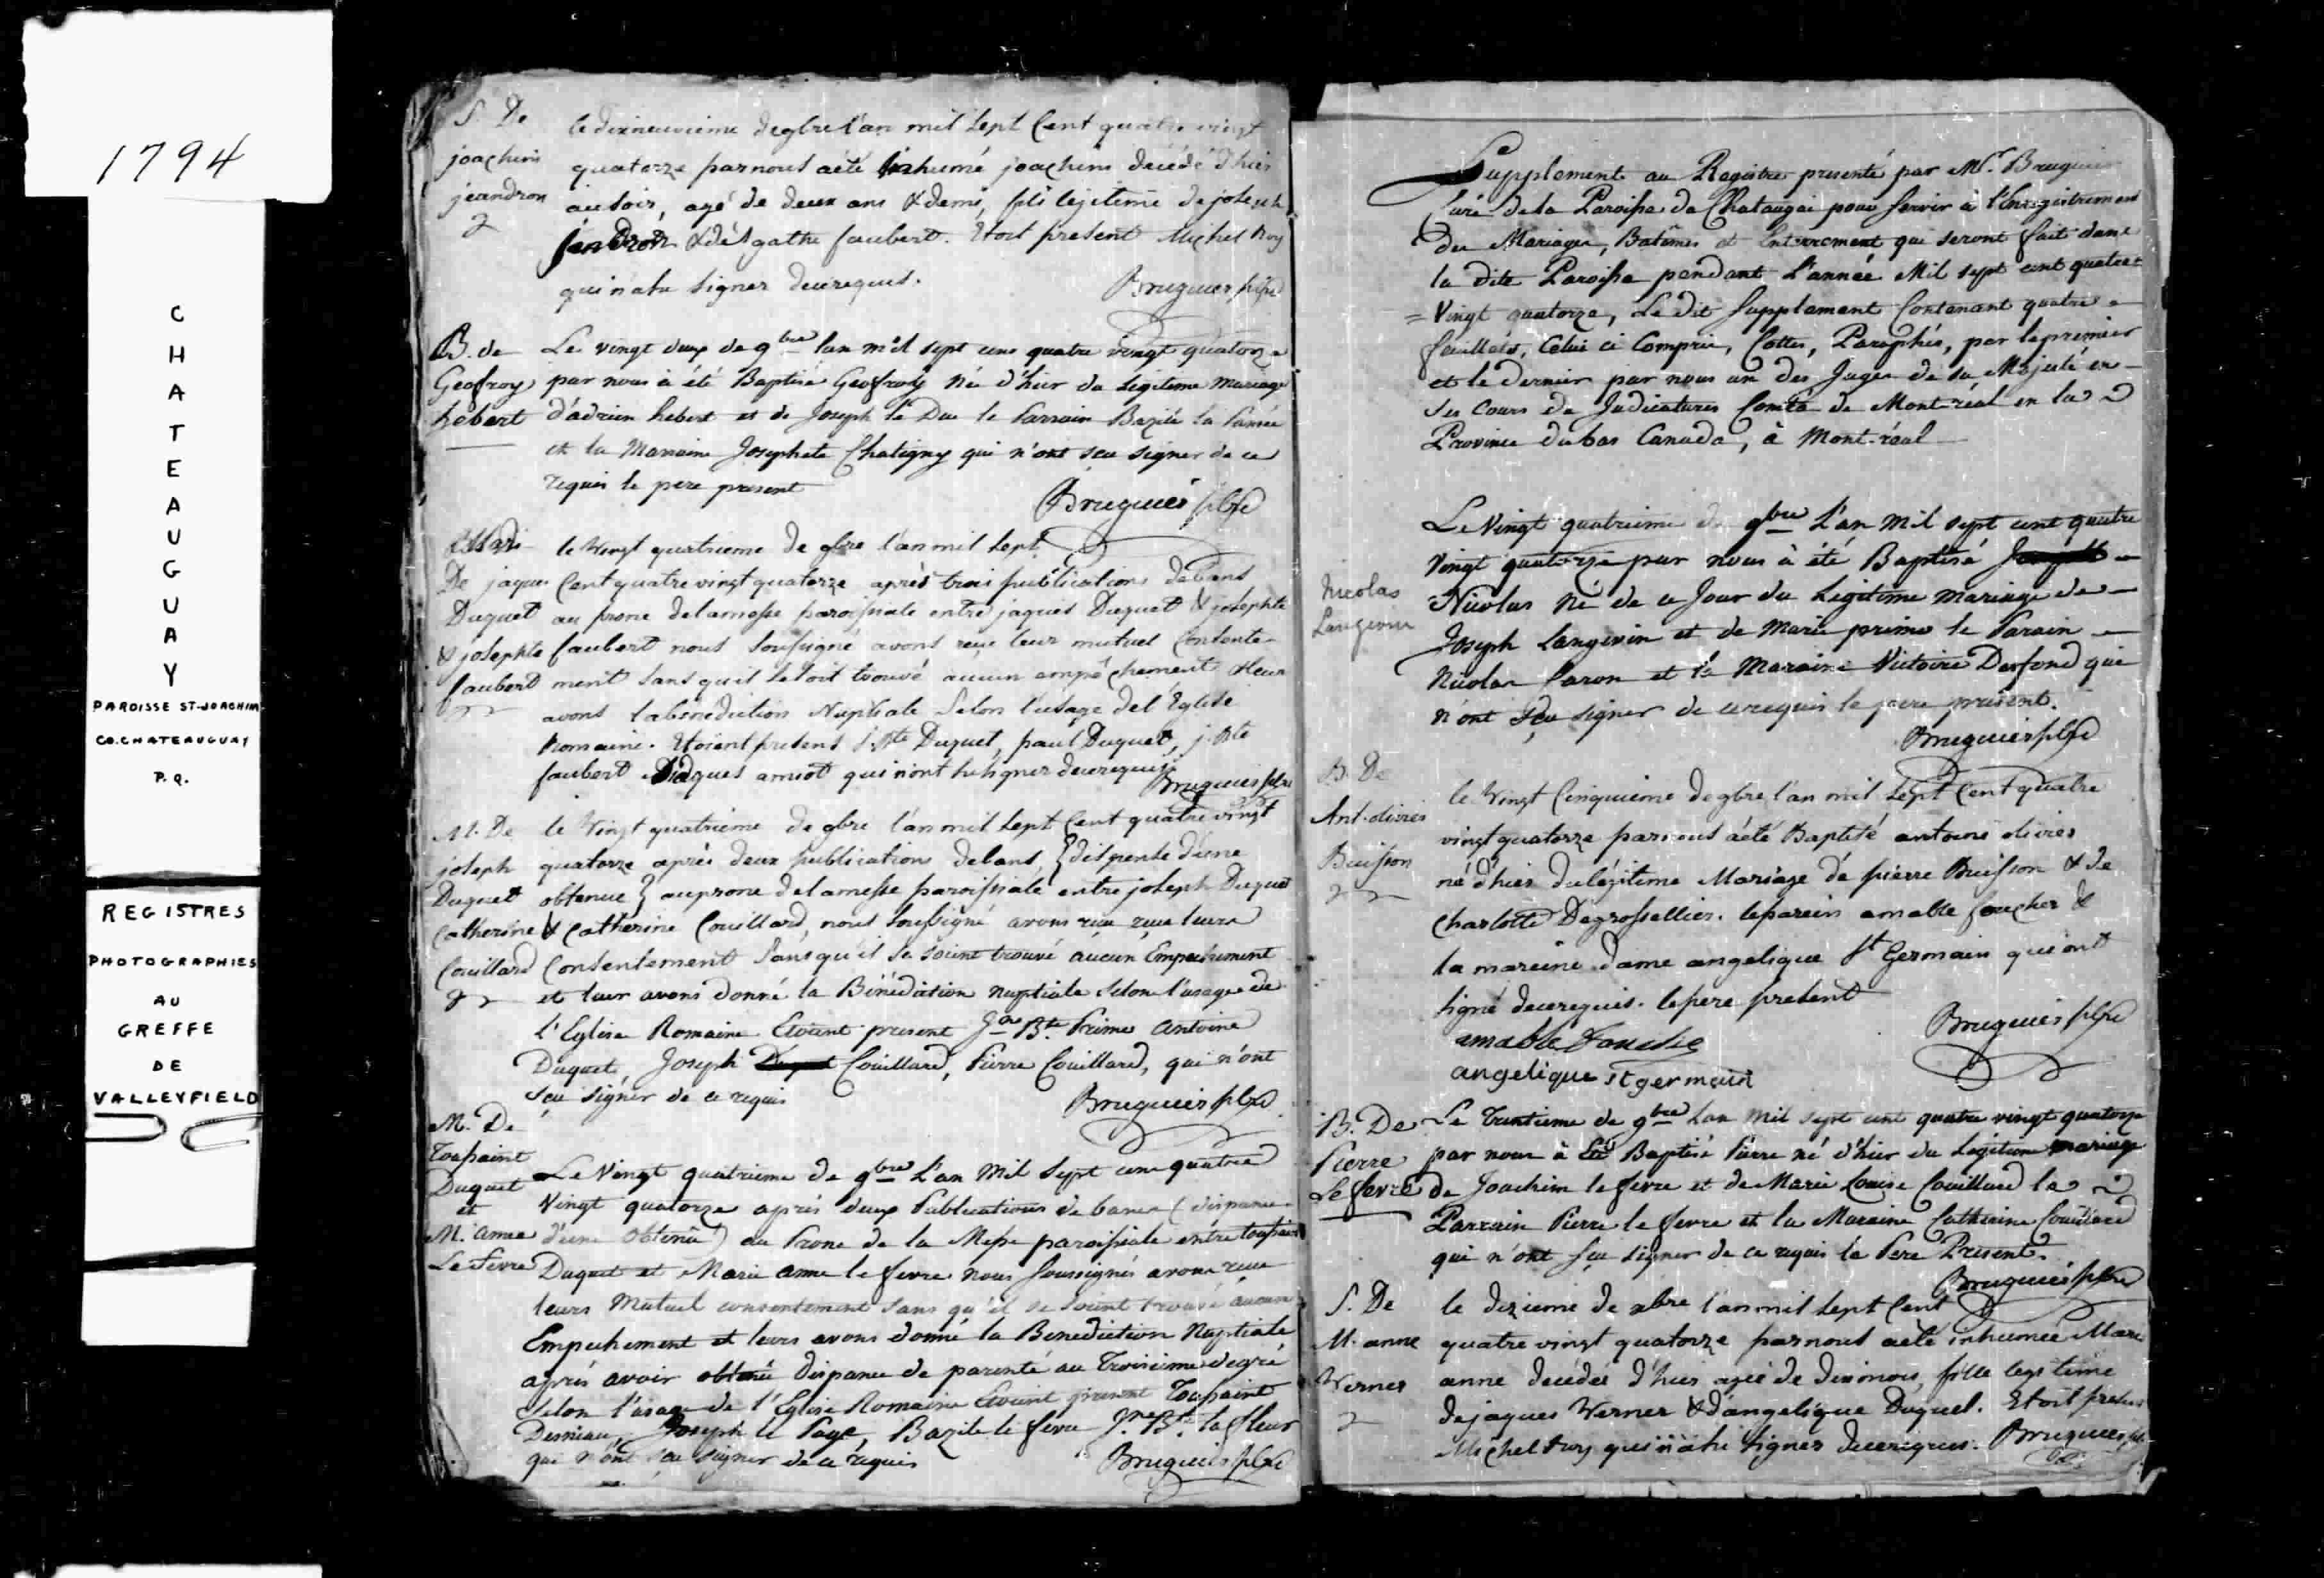 1794
CHATEAUGUAY
PAROISSE ST-JOACHIM
CO. CHATEAUGUAY
P. Q.
REGISTRES
PHOTOGRAPHIES
AU
GREFFE
DE
VALLEYFIELD
S. De
joachim
jeandron
le dixneuvieme de 9bre l'an mil sept Cent quatre vingt
quatorze par nous a été inhumé joachim decédé d'hier
au soir, agé de deux ans & demi, fils lejitime de joseph
jendron & d'Agathe faubert. Etoit present Michel Roy
qui n'a su signer de ce requis.
Bruguier ptre
B. de
Geofroy
hébert
Le vingt deux de 9bre l'an mil sept cens quatre vingt quatorze
par nous à été Baptisé Geofroy Né d'hier du Légitime mariage
d'adrien hebert et de Joseph le Duc le Parrain Bazile
et la Marraine Josephete Chatigny qui n'ont sçu signer de ce
requis le pere present
Bruguier ptre
De jaques
Duquet
& josephte
faubert
le Vingt quatrieme de 9bre l'an mil sept
Cent quatre vingt quatorze après trois publications de bans
au prone de la messe paroissiale entre jaques Duquet & josephte
faubert nous soussigné avons reçu leur mutuel consente-
ment sans qu'il se soit trouvé aucun empêchement & leur
avons la benediction Nuptiale selon l'usage de l'Eglise
Romaine. Etoient presens j. Bte Duquet, paul Duquet, j. Bte
faubert jaques amiot qui n'ont su signer de ce requis
Bruguier ptre
M. De
joseph
Duquet
Catherine
Couillard
le Vingt quatrieme de 9bre l'an mil sept Cent quatre vingt
quatorze après deux publications de bans, { dispense d'une
obtenue } au prone de la messe paroissiale entre joseph Duquet
& Catherine Couillard, nous soussigné avons reçu leurs
Consentement sans qu'il se soient trouvé aucun Empechement
et leur avons donné la Bénédiction nuptiale selon l'usage de
l'Eglise Romaine Etoient present Jn Bte Prime Antoine
Duquet, Joseph Couillard, Pierre Couillard, qui n'ont
sçu signer de ce requis
Bruguier ptre
M. De
Toussaint
Duquet
et
M. anne
Le fevre
Le Vingt quatrieme de 9bre L'an Mil Sept cens quatre
Vingt quatorze après deux Publications de bans ( dispense
d'une Obtenue ) au Prone de la Messe paroissiale entre toussaint
Duquet et Marie anne le fevre nous soussignés avons reçu
leurs Mutuel consentement sans qu'il se soient trouvé aucun
Empechement et leurs avons donné la Benediction Nuptiale
après avoir obtenu dispense de parenté au Troisieme degré
selon l'usage de l'Eglise Romaine Etoient present Toussaint
Joseph le Page, Bazile le fevre J.ne Bte lafleur
qui n'ont sçu signer de ce requis
Bruguier ptre
Supplement au Registre presenté par Mr. Bruguier
Curé de la Paroisse de Chataugai pour servir à l'Enregistrement
des Mariages, Batêmes et Enterrement qui seront fait dans
la dite Paroisse pendant L'année Mil sept cent quatre
= Vingt quatorze, Le dit Supplement Contenant quatre
feuillets, Celui ci Compris, Cottes, Paraphés, par le premier
et le dernier par nous un des Juges de sa Majesté en
ses Cours de Judicatures Comté de Mont-réal en la
Province du bas Canada, à Mont-réal
Nicolas
Langevin
Le Vingt quatrieme de 9bre L'an Mil sept cent quatre
Vingt quatorze par nous à été Baptisé
Nicolas Né de ce Jour du Légitime mariage de
Joseph Langevin et de Marie prime le Parain
Nicolas Caron et la Maraine Victoire Desfond qui
n'ont sçu signer de ce requis le pere present.
Bruguier ptre
B. De
Ant. olivier
Buisson
le Vingt Cinquieme de 9bre l'an mil sept Cent quatre
vingt quatorze par nous a été Baptisé antoine olivier
né d'hier du légitime Mariage de pierre Buisson & de
Charlotte Degrosellier. le parein amable foucher &
la mareine dame angelique St Germain qui ont
signé de ce requis. le pere present
Bruguier ptre
amable Fouche
angelique st germain
B. De
Pierre
Le fevre
Le Trentieme de 9bre L'an Mil sept cent quatre vingt quatorze
par nous à été Baptisé Pierre né d'hier du Legitime mariage
de Joachim le fevre et de Marie Louise Couillard le
Parrain Pierre le fevre et la Maraine Catherine Couillard
qui n'ont sçu signer de ce requis le Pere Present.
Bruguier ptre
S. De
M. anne
Werner
le dixieme de xbre l'an mil sept Cent
quatre vingt quatorze par nous a été inhumée Marie
anne decédée d'hier agée de dix mois, fille legitime
de jaques Werner & d'angelique Duquet. Etoit present
Michel Roy qui n'a su signer de ce requis.
Bruguier ptre